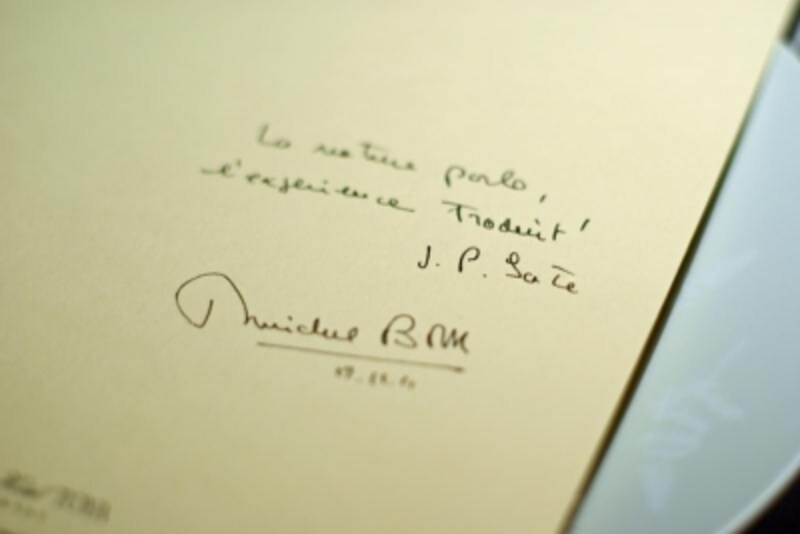 La nature parle,
l'expérience traduit!
J. P. Sa te
Michel BRAS